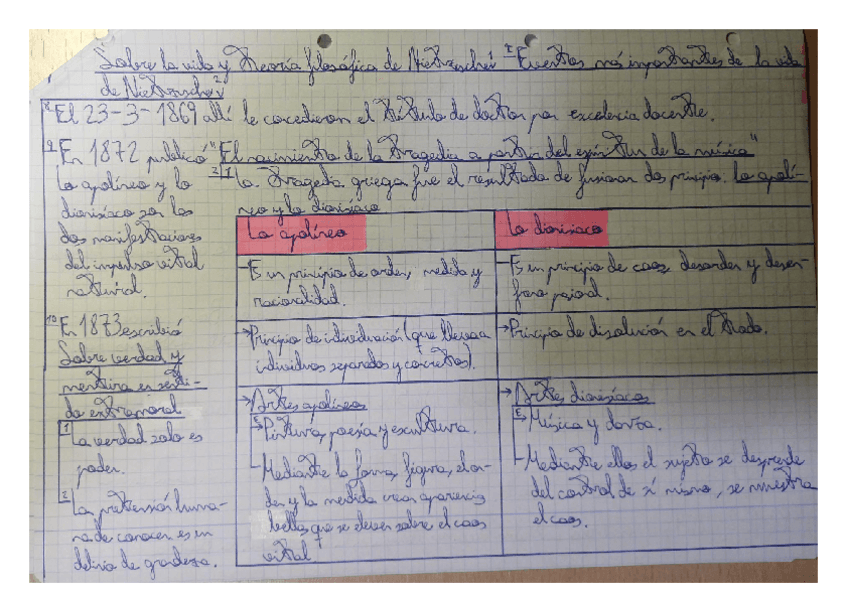 Sobre la vida y Teoría filosófica de Nietzsche: I Eventos más importantes de la vida
de Nietzsche 2
8. El 23-3-1869 allí le concedieron el título de doctor por excelencia docente.
9. En 1872 publicó "El nacimiento de la tragedia a partir del espíritu de la música"
Lo apolíneo y lo
dionisíaco son las
dos manifestaciones
del impulso vital
natural.
2.1 La tragedia griega fue el resultado de fusionar dos principios. Lo apolí-
neo y lo dionisíaco
Lo apolíneo
Lo dionisiaco
-Es un principio de orden, medida y
racionalidad.
-Es un principio de caos, desorden y desen-
freno pasional.
→Principio de individuación (que lleva a
individuos separados y concretos).
→Principio de disolución en el todo.
→Artes apolíneas
Pintura, poesía y escultura.
-Mediante la forma, figura, el or-
den y la medida crean apariencias
bellas que se elevan sobre el caos
vital
→Artes dionisíacas
Música y danza.
-Mediante ellas el sujeto se desprende
del control de sí mismo, se muestra
el caos.
10. En 1873 escribió
Sobre verdad y
mentira en senti-
do extramoral
1 La verdad solo es
poder.
2 La pretensión huma-
na de conocer es un
delirio de grandeza.